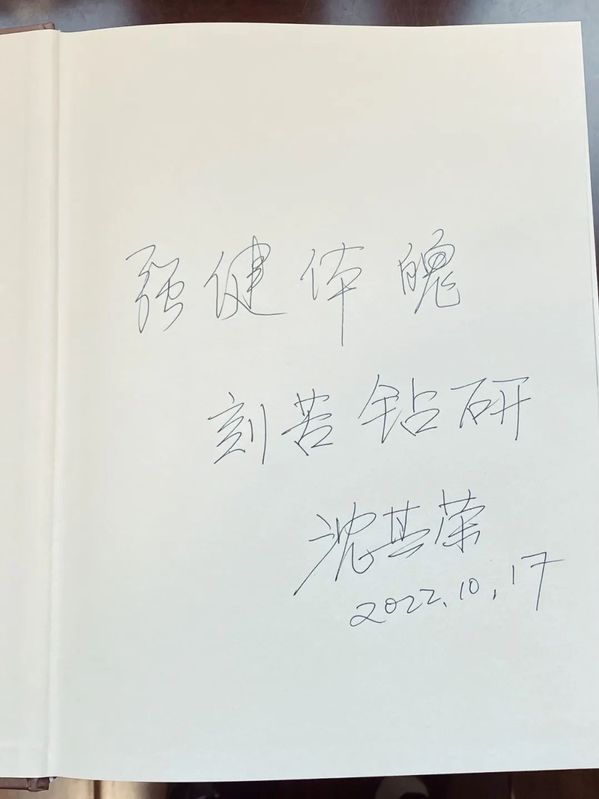 强健体魄
刻苦钻研
沈其荣
2022.10.17